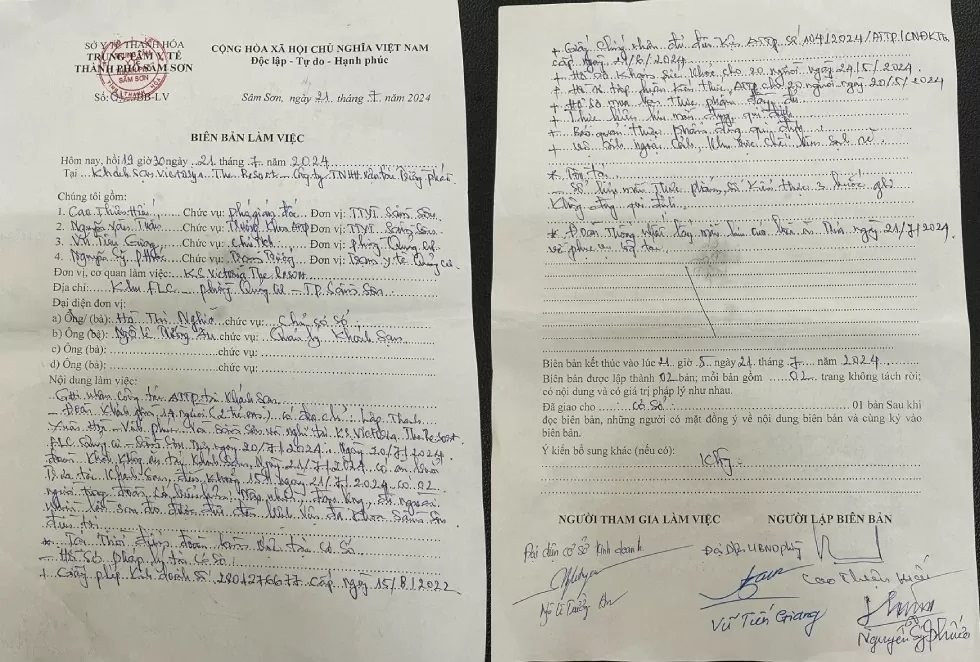 SỞ Y TẾ THANH HÓA
TRUNG TÂM Y TẾ
THÀNH PHỐ SẦM SƠN
Số: /BB-LV
CỘNG HÒA XÃ HỘI CHỦ NGHĨA VIỆT NAM
Độc lập - Tự do - Hạnh phúc
Sầm Sơn, ngày 21 tháng 7 năm 2024
BIÊN BẢN LÀM VIỆC
Hôm nay, hồi 19 giờ 30 ngày 21 tháng 7 năm 2024
Tại Khách sạn Victoria The Resort - Công ty TNHH
Chúng tôi gồm:
1. Cao Thiên Hiếu Chức vụ: phó giám đốc Đơn vị: TTYT Sầm Sơn
2. Nguyễn Văn Tuân Chức vụ: Trưởng khoa ATTP Đơn vị: TTYT Sầm Sơn
3. Vũ Tiến Giang Chức vụ: Chủ tịch Đơn vị: phường Quảng Cư
4. Nguyễn Sỹ Phước Chức vụ: Trạm Trưởng Đơn vị: Trạm y tế Quảng Cư
Đơn vị, cơ quan làm việc: K.S Victoria The Resort
Địa chỉ: Khu FLC - phường Quảng Cư - TP Sầm Sơn
Đại diện đơn vị:
a) Ông/ (bà): Hà Thị Nghĩa chức vụ: Chủ cơ sở
b) Ông (bà): Ngô Lê Trường An chức vụ: Quản lý Khách sạn
c) Ông (bà): chức vụ:
d) Ông (bà): chức vụ:
Nội dung làm việc:
Ghi nhận công tác ATTP tại Khách sạn
- Đoàn khách gồm 19 người (2 trẻ em) có địa chỉ: Lập Thạch
Vĩnh Phúc Sầm Sơn và nghỉ tại K.S Victoria The Resort
FLC Quảng Cư - Sầm Sơn Từ ngày 20/7/2024. Ngày 20/7/2024
đoàn khách không ăn tại khách sạn, Ngày 21/7/2024 có ăn
tại khách sạn, đến khoảng 15h ngày 21/7/2024 có 02
người trong đoàn có biểu hiện: đau bụng,
sau đó được đưa đến bệnh viện đa khoa Sầm Sơn
điều trị
* Tại Thời điểm đoàn kiểm tra tại cơ sở
- Hồ sơ pháp lý tại cơ sở:
+ Giấy phép kinh doanh số 2801276677 cấp ngày 15/8/2022
+ Giấy chứng nhận đủ điều kiện ATTP số 104/2024/ATTP/CNĐK
cấp ngày 2024
+ Hồ sơ khám sức khỏe cho 20 người ngày 24/5/2024
+ Hồ sơ tập huấn kiến thức ATTP cho 20 người ngày 20/5/2024
+ Hồ sơ mua bán thực phẩm đầy đủ
+ Thực hiện lưu mẫu đúng qui định
+ Bảo quản thực phẩm đúng qui định
+ Vệ sinh ngoại cảnh, khu vực chế biến sạch sẽ
* Tồn tại
- Sổ lưu mẫu thực phẩm, sổ kiểm thực 3 bước ghi
không đúng qui định
* Đoàn thống nhất lấy mẫu lưu ngày 21/7/2024
Biên bản kết thúc vào lúc 21 giờ 5 ngày 21 tháng 7 năm 2024
Biên bản được lập thành 02 bản; mỗi bản gồm 02 trang không tách rời;
có nội dung và có giá trị pháp lý như nhau.
Đã giao cho cơ sở 01 bản Sau khi
đọc biên bản, những người có mặt đồng ý về nội dung biên bản và cùng ký vào
biên bản.
Ý kiến bổ sung khác (nếu có):
Không
NGƯỜI THAM GIA LÀM VIỆC
NGƯỜI LẬP BIÊN BẢN
Đại diện cơ sở kinh doanh
Ngô Lê Trường An
Đại diện UBND phường
Vũ Tiến Giang
Cao Thiên Hiếu
Nguyễn Sỹ Phước